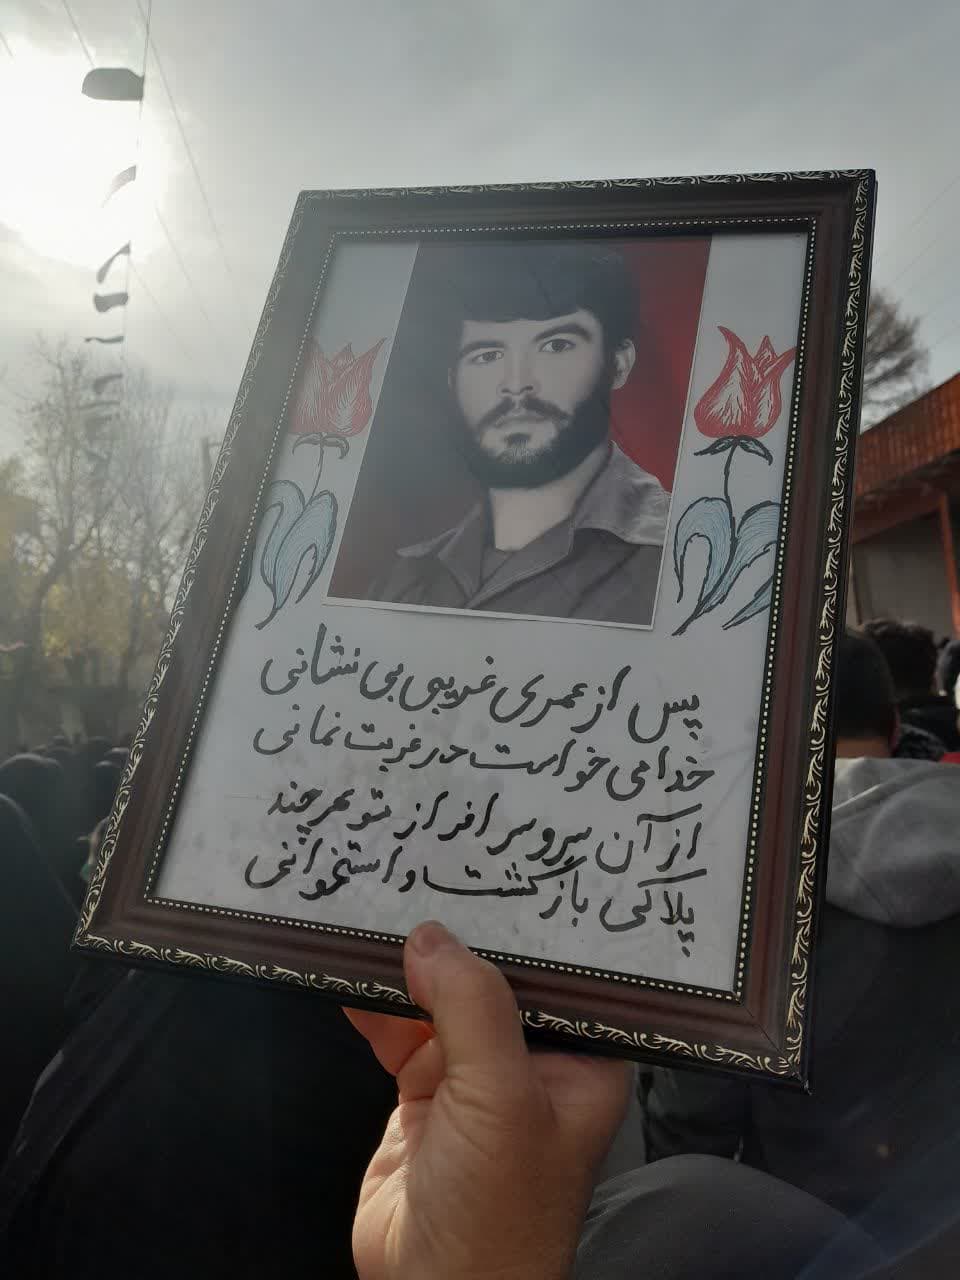 پس از عمری غریبی بی نشانی
خدا می خواست در غربت نمانی
از آن سرو سرافراز تو هرچند
پلاکی بازگشت و استخوانی